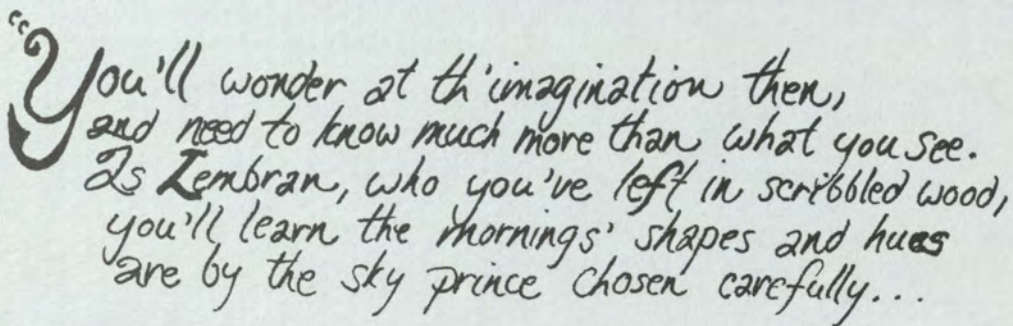 “You'll wonder at th'imagination then,
and need to know much more than what you see.
As Lembran, who you've left in scribbled wood,
you'll learn the mornings' shapes and hues
are by the sky prince chosen carefully...